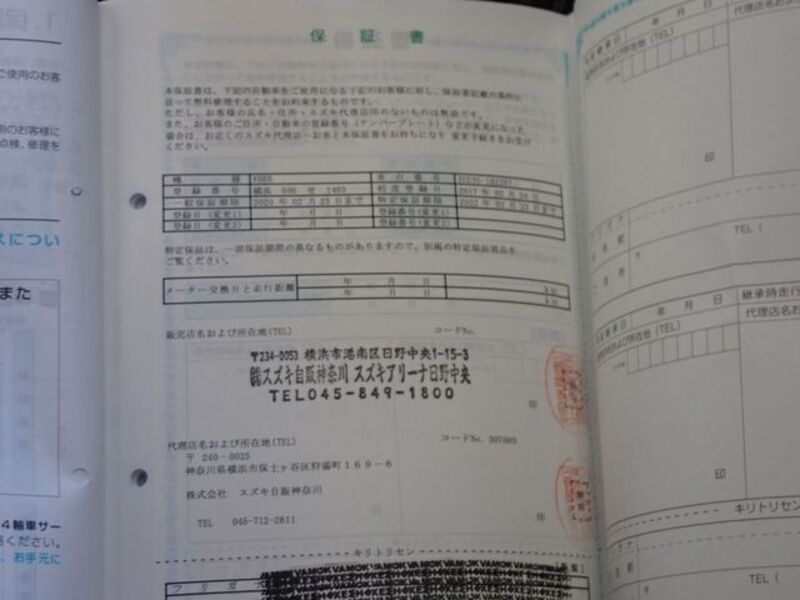 保 証 書
本保証書は、下記の自動車をご使用になる下記のお客様に対し、保証書記載の条件に
従って無料修理することをお約束するものです。
ただし、お客様の氏名・住所・スズキ代理店印のないものは無効です。
また、お客様のご住所・自動車の登録番号(ナンバープレート)などが変更になった
場合は、お近くのスズキ代理店へお客と本保証書をお持ちになり 変更手続きをお受け
ください。
機 種 車台番号
登録番号 横浜 せ 1463 初度登録日 2017年02月24日
一般保証期限 2020年02月23日まで 特定保証期限 2022年02月23日まで
登録日(変更1) 年 月 日 登録番号(変更1)
登録日(変更2) 年 月 日 登録番号(変更2)
特定保証は、一部保証期間の異なるものがありますので、別掲の特定保証部品を
ご覧ください。
メーター交換日と走行距離 年 月 日 km
年 月 日 km
販売店名および所在地(TEL) コードNo.
〒234-0053 横浜市港南区日野中央1-15-3
㈱スズキ自販神奈川 スズキアリーナ日野中央
TEL045-849-1800
印
代理店名および所在地(TEL) コードNo.
〒 240-0025
神奈川県横浜市保土ヶ谷区狩場町169-6
株式会社 スズキ自販神奈川
印
TEL 045-712-2811
キリトリセン
フリガナ
ご使用のお客
用のお客様に
点検、修理を
スについ
また
4輪車サー
ください。
、お手元に
年 月 日
代理店名およ
印
TEL (
〒
年 月 日
継承時走行
代理店名お
印
キリトリセン
TEL (
〒